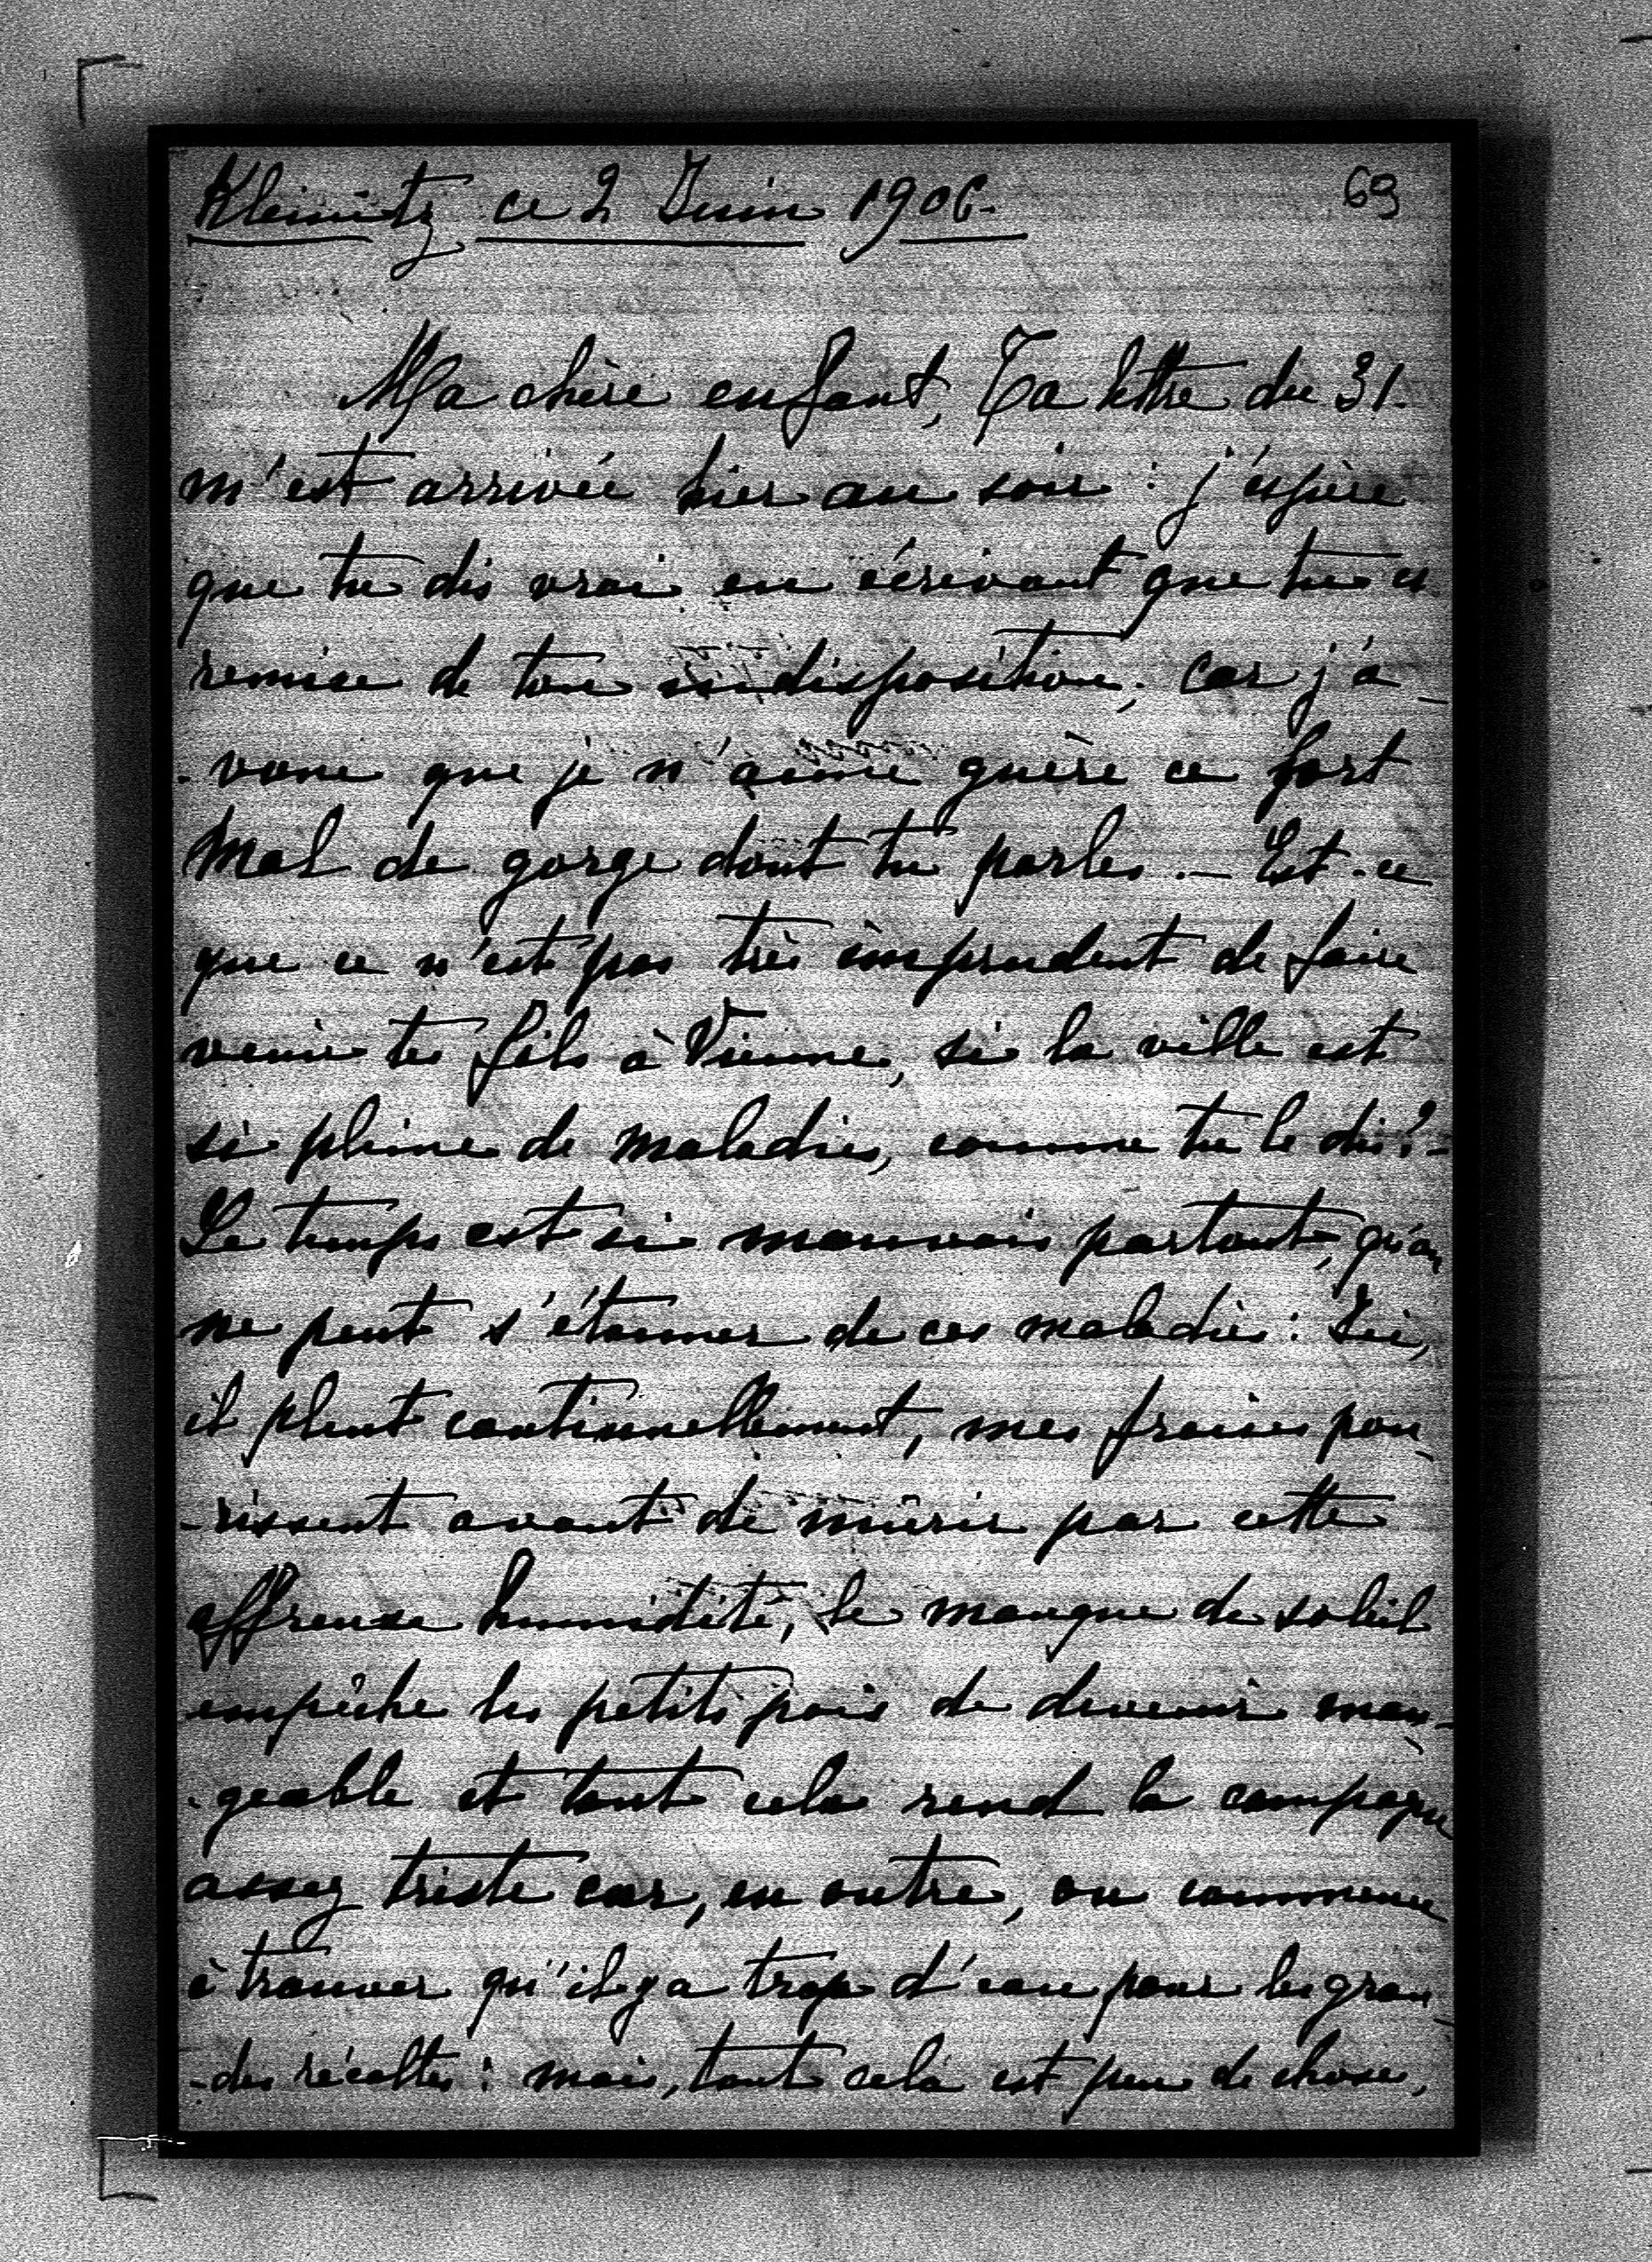 Kleinitz ce 2 Juin 1906.
69
Ma chère enfant, Ta lettre du 31.
m'est arrivée hier au soir : j'espère
que tu dis vrai en écrivant que tu es
remise de ton indisposition; car j'a-
-voue que je n'aime guère ce fort
mal de gorge dont tu parles. — Est-ce
que ce n'est pas très imprudent de faire
venir tes fils à Vienne, si la ville est
si pleine de maladies, comme tu le dis? -
Le temps est si mauvais partout, qu'on
ne peut s'étonner de ces maladies : Ici,
il pleut continuellement, mes fraises pou-
-rissent avant de mûrir par cette
affreuse humidité, le manque de soleil
empêche les petits pois de devenir man-
-geable et tout cela rend la campagne
assez triste car, en outre, on commence
à trouver qu'il y a trop d'eau pour les gran-
-des récoltes : mais, tout cela est peu de chose,